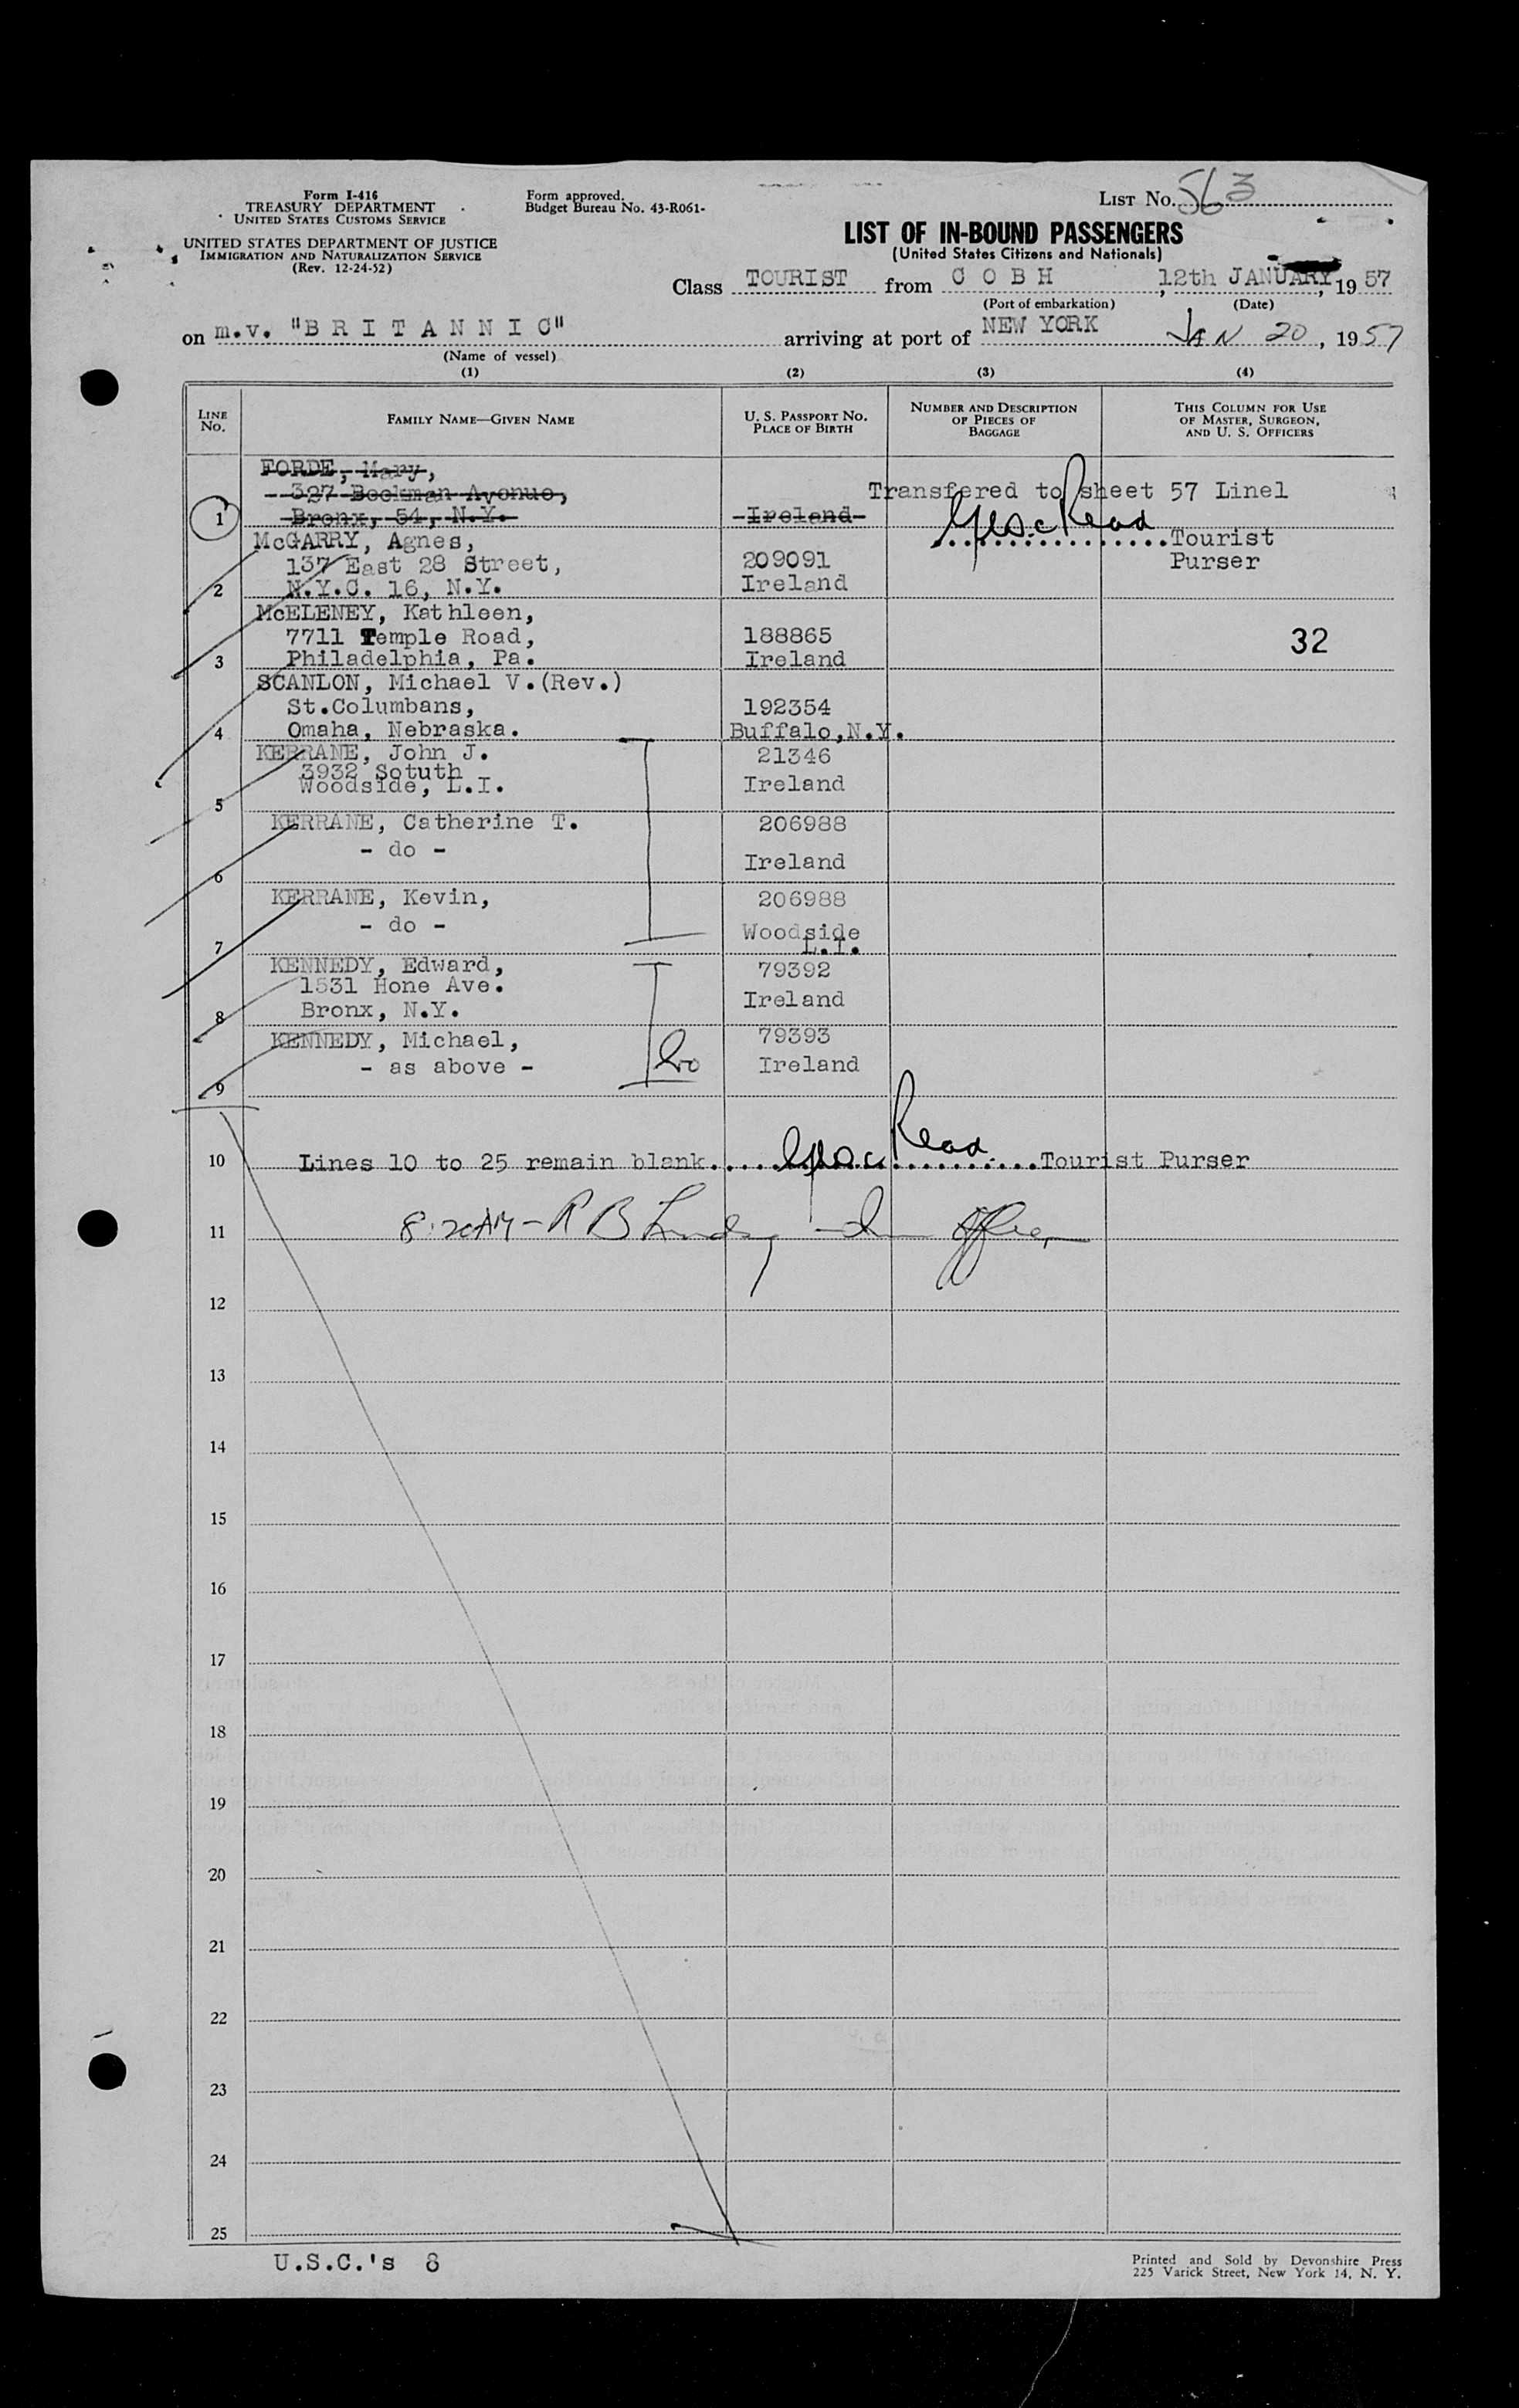 Form I-416
TREASURY DEPARTMENT
UNITED STATES CUSTOMS SERVICE
UNITED STATES DEPARTMENT OF JUSTICE
IMMIGRATION AND NATURALIZATION SERVICE
(Rev. 12-24-52)
Form approved.
Budget Bureau No. 43-R061-
LIST NO. 563
LIST OF IN-BOUND PASSENGERS
(United States Citizens and Nationals)
Class TOURIST from C O B H, 12th JANUARY, 1957
(Port of embarkation) (Date)
on m.v. "B R I T A N N I C" arriving at port of NEW YORK JAN 20, 1957
(Name of vessel)
(1) (2) (3) (4)
LINE NO. FAMILY NAME—GIVEN NAME U. S. PASSPORT NO. PLACE OF BIRTH NUMBER AND DESCRIPTION OF PIECES OF BAGGAGE THIS COLUMN FOR USE OF MASTER, SURGEON, AND U. S. OFFICERS
FORDE, Mary,
327 Beekman Avenue, Transfered to sheet 57 Line1
1 Bronx, 54, N.Y. Ireland
McGARRY, Agnes, Read Tourist
137 East 28 Street, 209091 Purser
2 N.Y.C. 16, N.Y. Ireland
McELENEY, Kathleen,
7711 Temple Road, 188865 32
3 Philadelphia, Pa. Ireland
SCANLON, Michael V.(Rev.)
St.Columbans, 192354
4 Omaha, Nebraska. Buffalo,N.Y.
KERRANE, John J. 21346
3932 Sotuth
Woodside, L.I. Ireland
5
KERRANE, Catherine T. 206988
- do -
6 Ireland
KERRANE, Kevin, 206988
- do - Woodside
7 L.I.
KENNEDY, Edward, 79392
1531 Hone Ave. Ireland
8 Bronx, N.Y.
KENNEDY, Michael, 79393
- as above - Ireland
9
10 Lines 10 to 25 remain blank..... Read .....Tourist Purser
11 8:20AM - R B
12
13
14
15
16
17
18
19
20
21
22
23
24
25
U.S.C.'s 8
Printed and Sold by Devonshire Press
225 Varick Street, New York 14, N. Y.